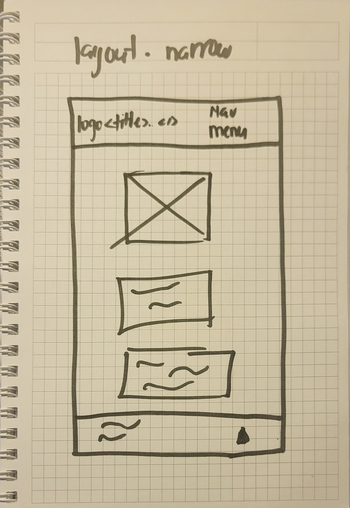 layout. narrow
logo <title>. <1> Nav
menu